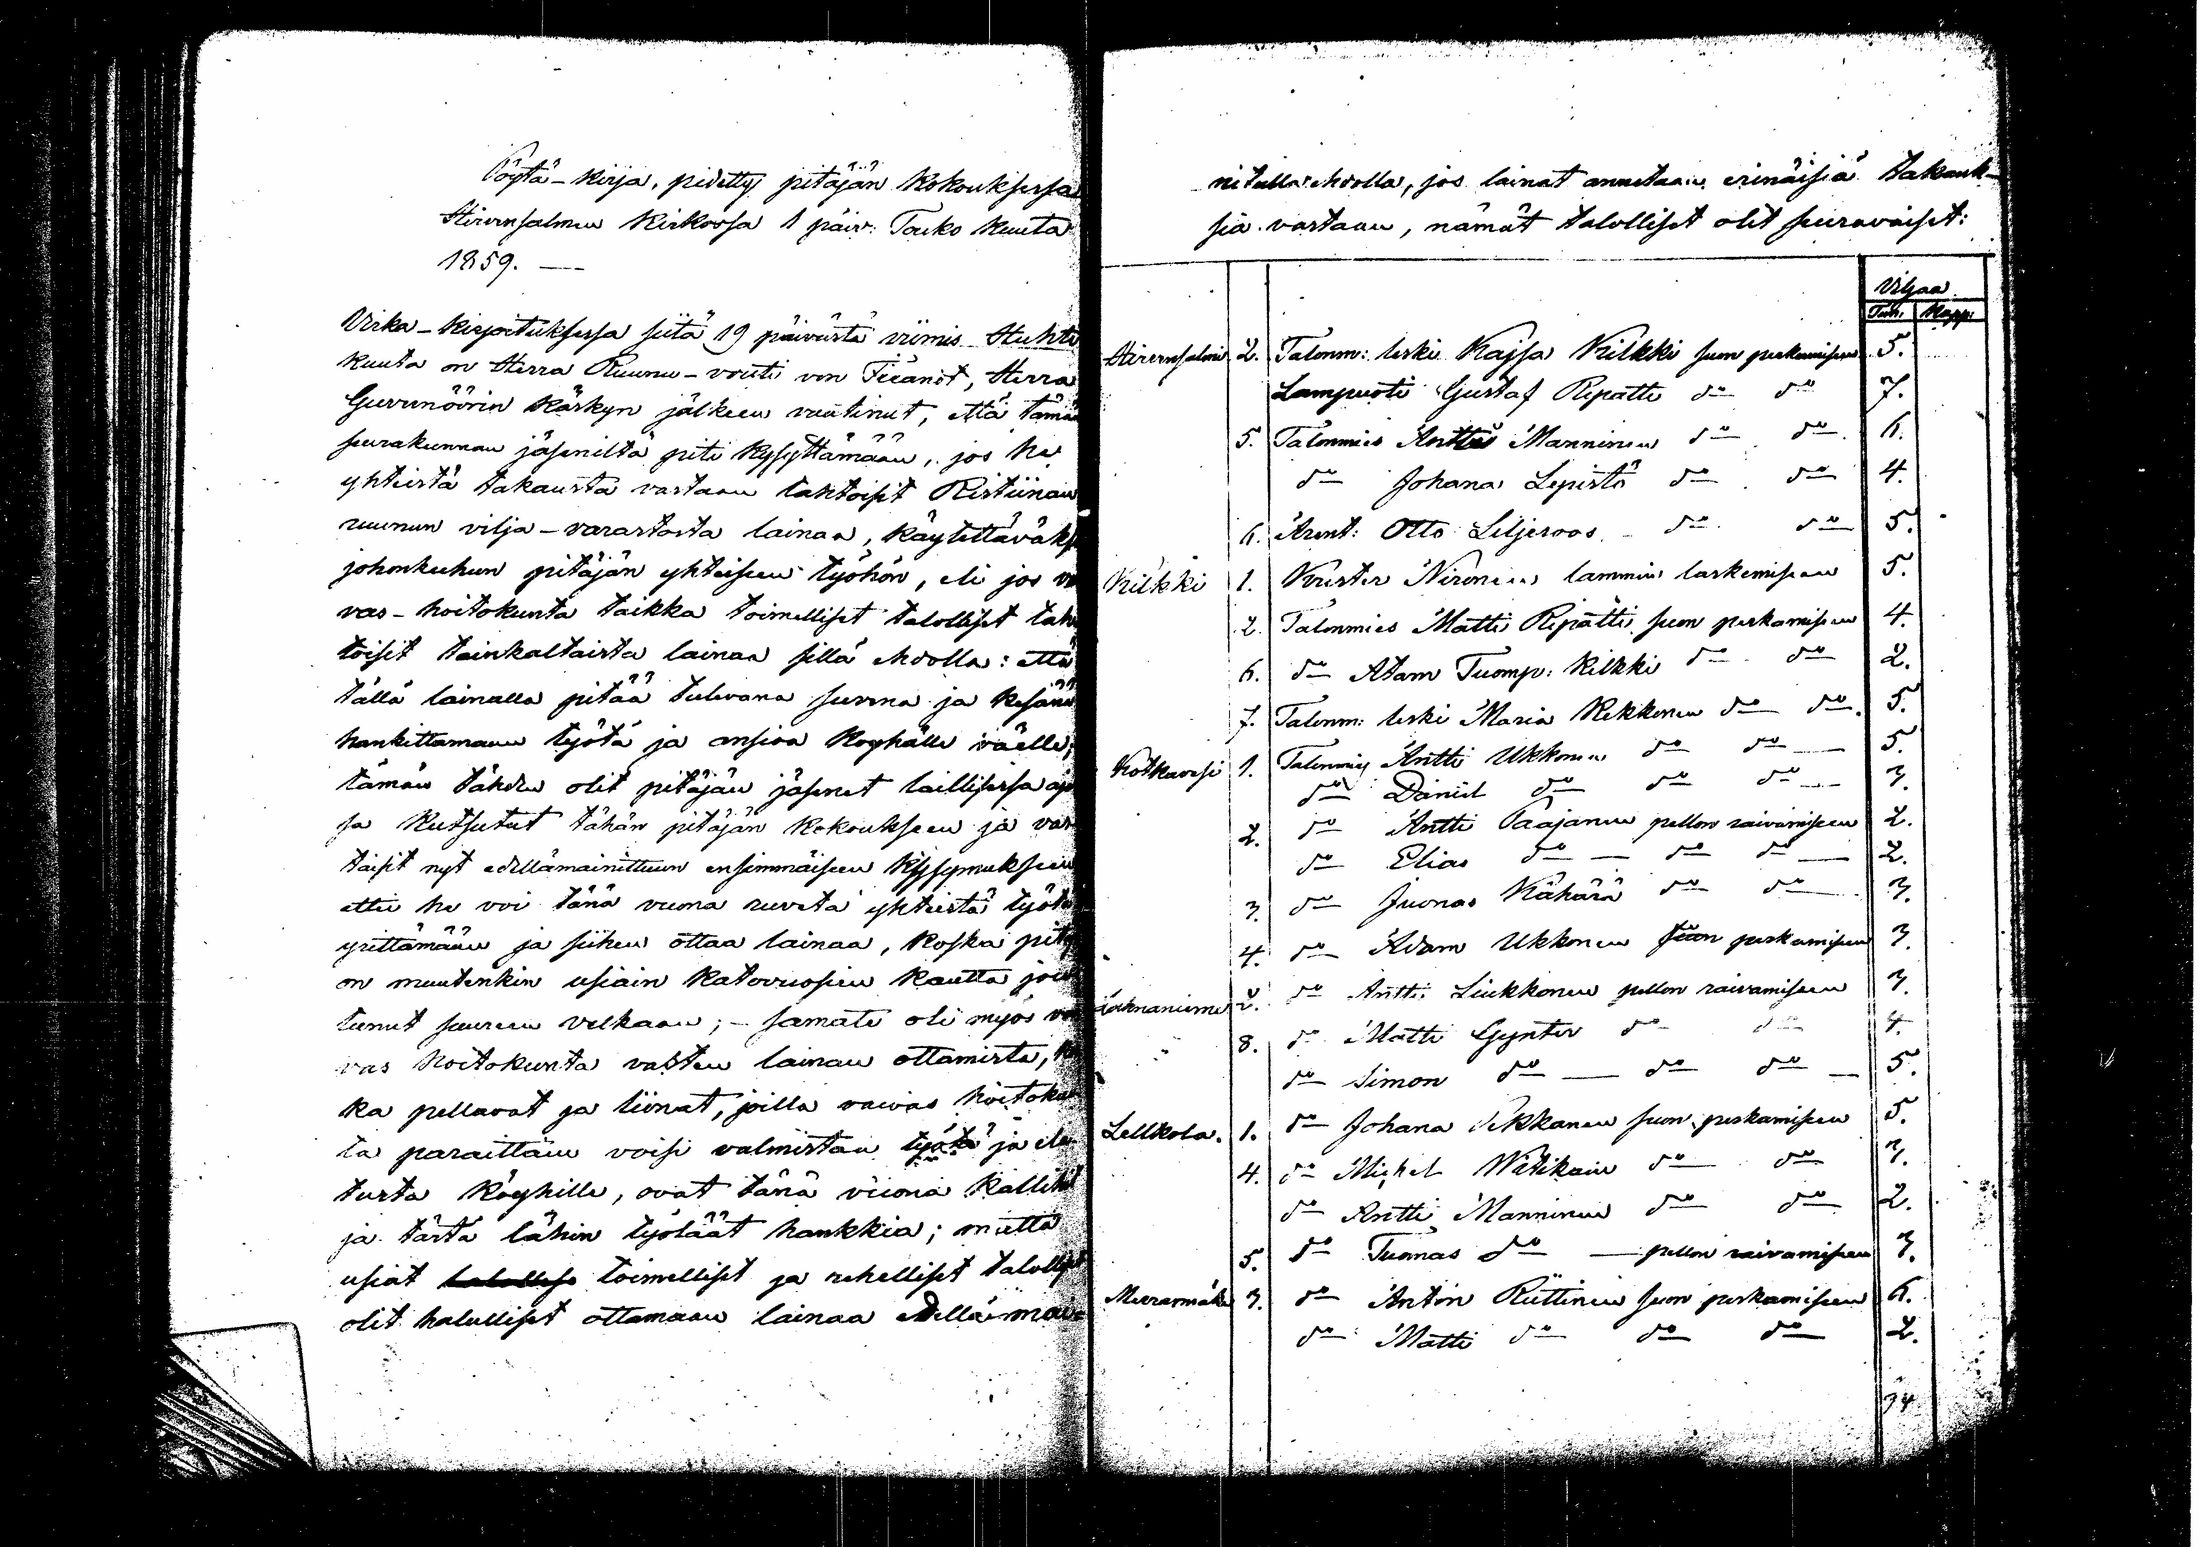 Pöytä-kirja, pidetty pitäjän kokouksessa
Hirvensalmen kirkossa 1 päiv: Touko kuuta
1859. —
Virka-kirjoituksessa siitä 19 päivästä viimis Huhti
kuuta on Herra Ruunu-vouti von Fieandt, Herra
Guvernöörin käskyn jälkeen vaatinut, että tämän
seurakunnan jäseniltä piti kysyttämään, jos he
yhteistä takausta vastaan tahtoisit Ristiinan
ruunun vilja-varastosta lainaa, käytettäväksi
johonkuhun pitäjän yhteiseen työhön, eli jos
vas-hoitokunta taikka toimelliset talolliset
toisit tainkaltaista lainaa sillä ehdolla: että
tällä lainalla pitää tulevana suvena ja kesänä
hankittamaan työtä ja ansioa köyhälle väelle;
tämän tähden olit pitäjän jäsenet laillisessa
sa kutsutut tähän pitäjän kokoukseen ja
taisit nyt edellämainittuun ensimmäiseen kysymykseen
ettei he voi tänä vuona ruveta yhteistä työtä
yrittämään ja siihen ottaa lainaa, koska
on muutenkin usiain katovuosien kautta
tunut suureen velkaan; – samate oli myös
vas hoitokunta vasten lainan ottamista,
ka pellavat ja liinat, joilla vaivas hoitokun
ta paraittain voisi valmistaa työtä ja ela
tusta köyhille, ovat tänä vuona kalliit
ja tästä lähin työläät hankkia; mutta
usiat toimelliset ja rehelliset talolliset
olit halulliset ottamaan lainaa edellämai
nitulla ehdolla, jos lainat annetaan erinäisiä takauk-
sia vastaan, nämät talolliset olit seuravaiset:
Viljaa
Tun: Kapp:
Hirvensalmi 2. Talonm: leski Kajsa Kilkki suon perkamiseen 5.
Lampuoti Gustaf Ripatti do do 7.
5. Talonmies Antti Manninen do do 6.
do Johana Lepistö do do 4.
6. Arent: Otto Liljeroos do do 5.
Kilkki 1. Vouster Nironen lammin laskemiseen 5.
2. Talonmies Matti Ripatti suon perkamiseen 4.
6. do Atam Tuomp: Kilkki do do 2.
7. Talonm: leski Maria Kekkonen do do 5.
Kotkavesi 1. Talonmies Antti Ukkonen do do 5.
do Daniel do do do 3.
2. do Antti Paajanen pellon raivamiseen 2.
do Elias do do do 2.
3. do Juonas Kähärä do do 3.
4. do Adam Ukkonen suon perkamiseen 3.
Lahnaniemi 2. do Antti Liukkonen pellon raivamiseen 3.
8. do Matti Gynter do do 4.
do Simon do do do 5.
Lellkola. 1. do Johana Pekkanen suon perkamiseen 5.
4. do Michel Witikain do do 3.
do Antti Manninen do do 2.
5. do Tuomas do pellon raivamiseen 3.
Meeramäki 3. do Anton Riittinen suon perkamiseen 6.
do Matti do do do 2.
94